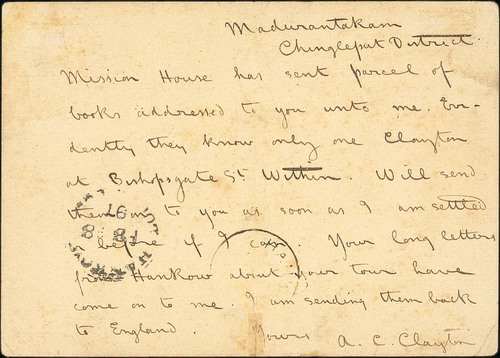 Madurantakam
Chingleput District.
Mission House has sent parcel of
books addressed to you unto me. Evi-
dently they know only one Clayton
at Bishopsgate St Within. Will send
them on to you as soon as I am settled
& before if I can. Your long letters
from Hankow about your tour have
come on to me. I am sending them back
to England.
Yours
A. C. Clayton